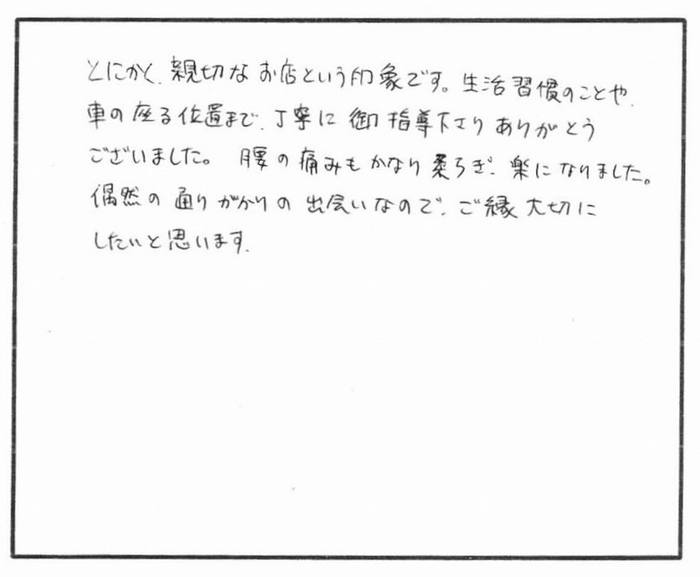 とにかく、親切なお店という印象です。生活習慣のことや、
車の座る位置まで、丁寧に御指導下さりありがとう
ございました。 腰の痛みもかなり柔らぎ、楽になりました。
偶然の通りがかりの出会いなので、ご縁大切に
したいと思います。